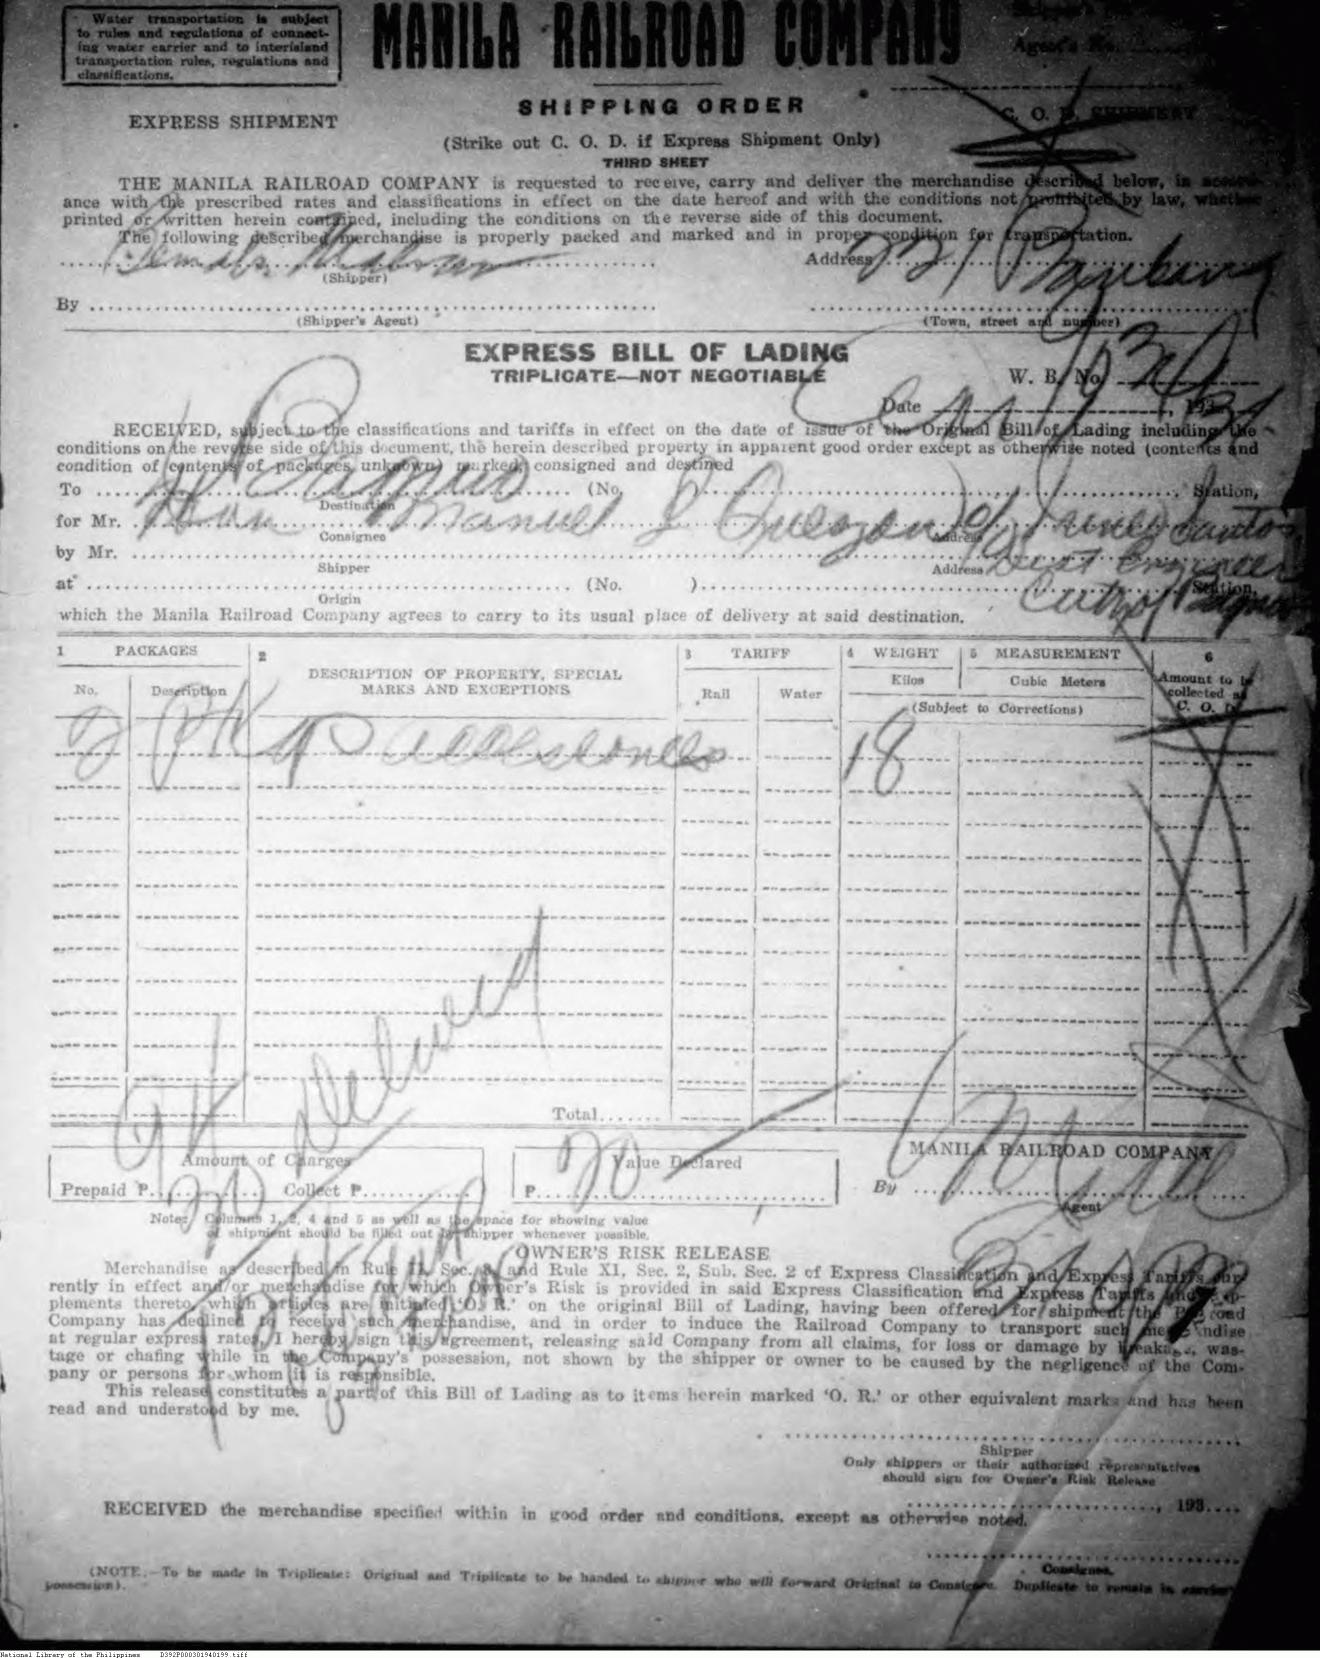 Water transportation is subject
to rules and regulations of connect-
ing water carrier and to interisland
transportation rules, regulations and
classifications.
MANILA RAILROAD COMPANY
Agent's No.
SHIPPING ORDER
EXPRESS SHIPMENT
C. O. D. SHIPMENT
(Strike out C. O. D. if Express Shipment Only)
THIRD SHEET
THE MANILA RAILROAD COMPANY is requested to receive, carry and deliver the merchandise described below, in accord-
ance with the prescribed rates and classifications in effect on the date hereof and with the conditions not prohibited by law, whether
printed or written herein contained, including the conditions on the reverse side of this document.
The following described merchandise is properly packed and marked and in proper condition for transportation.
Address
(Shipper)
By
(Shipper's Agent)
(Town, street and number)
EXPRESS BILL OF LADING
TRIPLICATE—NOT NEGOTIABLE
W. B. No.
Date , 193
RECEIVED, subject to the classifications and tariffs in effect on the date of issue of the Original Bill of Lading including the
conditions on the reverse side of this document, the herein described property in apparent good order except as otherwise noted (contents and
condition of contents of packages unknown) marked, consigned and destined
To (No. ) Station,
Destination
for Mr. Don Manuel L Quezon c/o
Consignee Address
Dist Engineer
by Mr.
Shipper Address
at (No. ) Station,
Origin
which the Manila Railroad Company agrees to carry to its usual place of delivery at said destination.
1 PACKAGES 2 DESCRIPTION OF PROPERTY, SPECIAL MARKS AND EXCEPTIONS 3 TARIFF 4 WEIGHT 5 MEASUREMENT 6 Amount to be collected as C. O. D.
No. Description Rail Water Kilos Cubic Meters
(Subject to Corrections)
2 Pk accessories 18
Total
Delivered
Amount of Charges
Value Declared
MANILA RAILROAD COMPANY
Prepaid ₱ Collect ₱
₱ 20
By
Agent
Note: Columns 1, 2, 4 and 5 as well as the space for showing value
of shipment should be filled out by shipper whenever possible.
OWNER'S RISK RELEASE
Merchandise as described in Rule II, Sec. 3, and Rule XI, Sec. 2, Sub. Sec. 2 of Express Classification and Express Tariffs cur-
rently in effect and/or merchandise for which Owner's Risk is provided in said Express Classification and Express Tariffs and sup-
plements thereto, which articles are initialed 'O. R.' on the original Bill of Lading, having been offered for shipment the Railroad
Company has declined to receive such merchandise, and in order to induce the Railroad Company to transport such merchandise
at regular express rates, I hereby sign this agreement, releasing said Company from all claims, for loss or damage by breakage, was-
tage or chafing while in the Company's possession, not shown by the shipper or owner to be caused by the negligence of the Com-
pany or persons for whom it is responsible.
This release constitutes a part of this Bill of Lading as to items herein marked 'O. R.' or other equivalent marks and has been
read and understood by me.
Shipper
Only shippers or their authorized representatives
should sign for Owner's Risk Release
, 193
RECEIVED the merchandise specified within in good order and conditions, except as otherwise noted.
Consignee.
(NOTE.—To be made in Triplicate: Original and Triplicate to be handed to shipper who will forward Original to Consignee. Duplicate to remain in carrier
possession).
National Library of the Philippines D392P000301940199.tiff